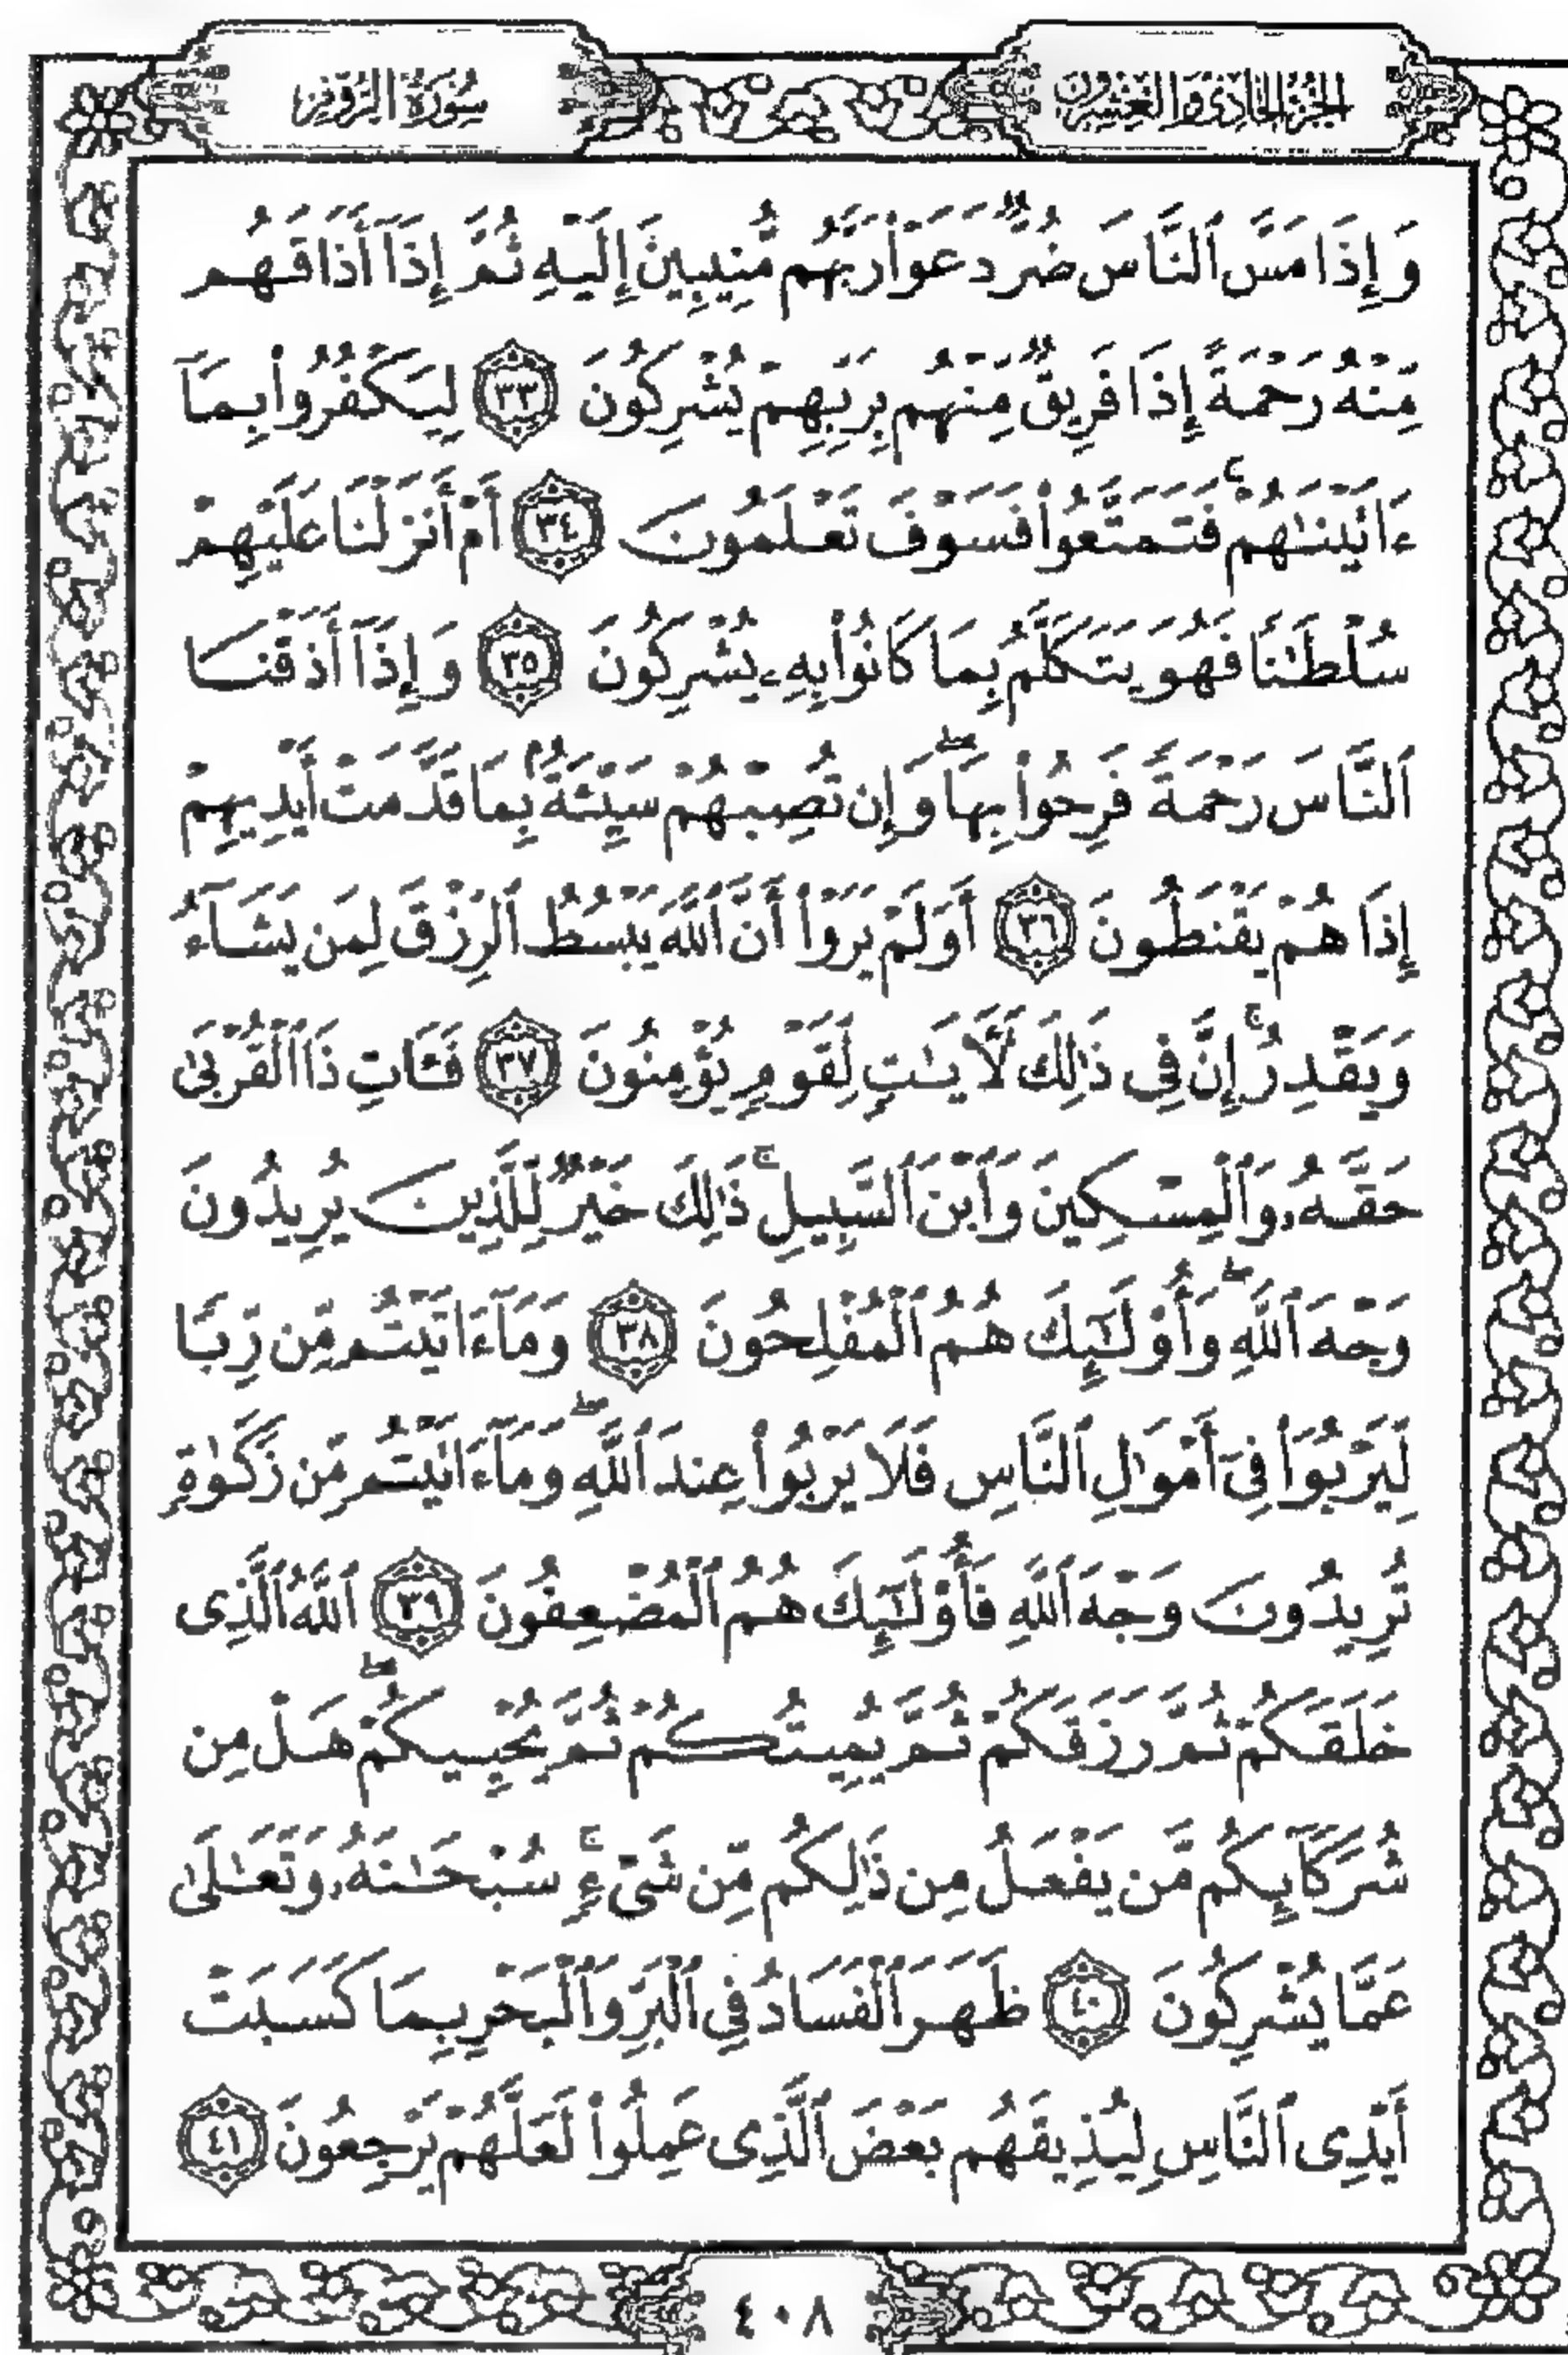 الجزء الحادي والعشرون
سورة الروم
وَإِذَا مَسَّ ٱلنَّاسَ ضُرٌّ دَعَوْا۟ رَبَّهُم مُّنِيبِينَ إِلَيْهِ ثُمَّ إِذَآ أَذَاقَهُم
مِّنْهُ رَحْمَةً إِذَا فَرِيقٌ مِّنْهُم بِرَبِّهِمْ يُشْرِكُونَ ٣٣ لِيَكْفُرُوا۟ بِمَآ
ءَاتَيْنَٰهُمْ ۚ فَتَمَتَّعُوا۟ فَسَوْفَ تَعْلَمُونَ ٣٤ أَمْ أَنزَلْنَا عَلَيْهِمْ
سُلْطَٰنًا فَهُوَ يَتَكَلَّمُ بِمَا كَانُوا۟ بِهِۦ يُشْرِكُونَ ٣٥ وَإِذَآ أَذَقْنَا
ٱلنَّاسَ رَحْمَةً فَرِحُوا۟ بِهَا ۖ وَإِن تُصِبْهُمْ سَيِّئَةٌۢ بِمَا قَدَّمَتْ أَيْدِيهِمْ
إِذَا هُمْ يَقْنَطُونَ ٣٦ أَوَلَمْ يَرَوْا۟ أَنَّ ٱللَّهَ يَبْسُطُ ٱلرِّزْقَ لِمَن يَشَآءُ
وَيَقْدِرُ ۚ إِنَّ فِى ذَٰلِكَ لَءَايَٰتٍ لِّقَوْمٍ يُؤْمِنُونَ ٣٧ فَـَٔاتِ ذَا ٱلْقُرْبَىٰ
حَقَّهُۥ وَٱلْمِسْكِينَ وَٱبْنَ ٱلسَّبِيلِ ۚ ذَٰلِكَ خَيْرٌ لِّلَّذِينَ يُرِيدُونَ
وَجْهَ ٱللَّهِ ۖ وَأُو۟لَٰٓئِكَ هُمُ ٱلْمُفْلِحُونَ ٣٨ وَمَآ ءَاتَيْتُم مِّن رِّبًا
لِّيَرْبُوَا۟ فِىٓ أَمْوَٰلِ ٱلنَّاسِ فَلَا يَرْبُوا۟ عِندَ ٱللَّهِ ۖ وَمَآ ءَاتَيْتُم مِّن زَكَوٰةٍ
تُرِيدُونَ وَجْهَ ٱللَّهِ فَأُو۟لَٰٓئِكَ هُمُ ٱلْمُضْعِفُونَ ٣٩ ٱللَّهُ ٱلَّذِى
خَلَقَكُمْ ثُمَّ رَزَقَكُمْ ثُمَّ يُمِيتُكُمْ ثُمَّ يُحْيِيكُمْ ۖ هَلْ مِن
شُرَكَآئِكُم مَّن يَفْعَلُ مِن ذَٰلِكُم مِّن شَىْءٍ ۚ سُبْحَٰنَهُۥ وَتَعَٰلَىٰ
عَمَّا يُشْرِكُونَ ٤٠ ظَهَرَ ٱلْفَسَادُ فِى ٱلْبَرِّ وَٱلْبَحْرِ بِمَا كَسَبَتْ
أَيْدِى ٱلنَّاسِ لِيُذِيقَهُم بَعْضَ ٱلَّذِى عَمِلُوا۟ لَعَلَّهُمْ يَرْجِعُونَ ٤١
٤٠٨